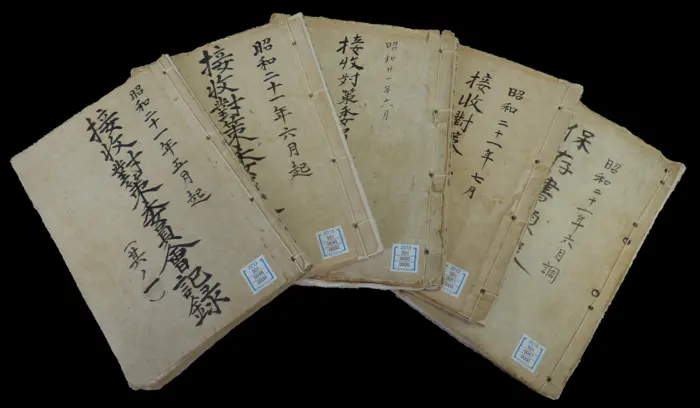 昭和二十一年五月起
接收對策委員會記録
(其ノ一)
昭和二十一年六月起
接收對策委
昭和廿一年六月
接收對策委
昭和二十一年七月
接收對策
昭和二十一年六月調
保存書類